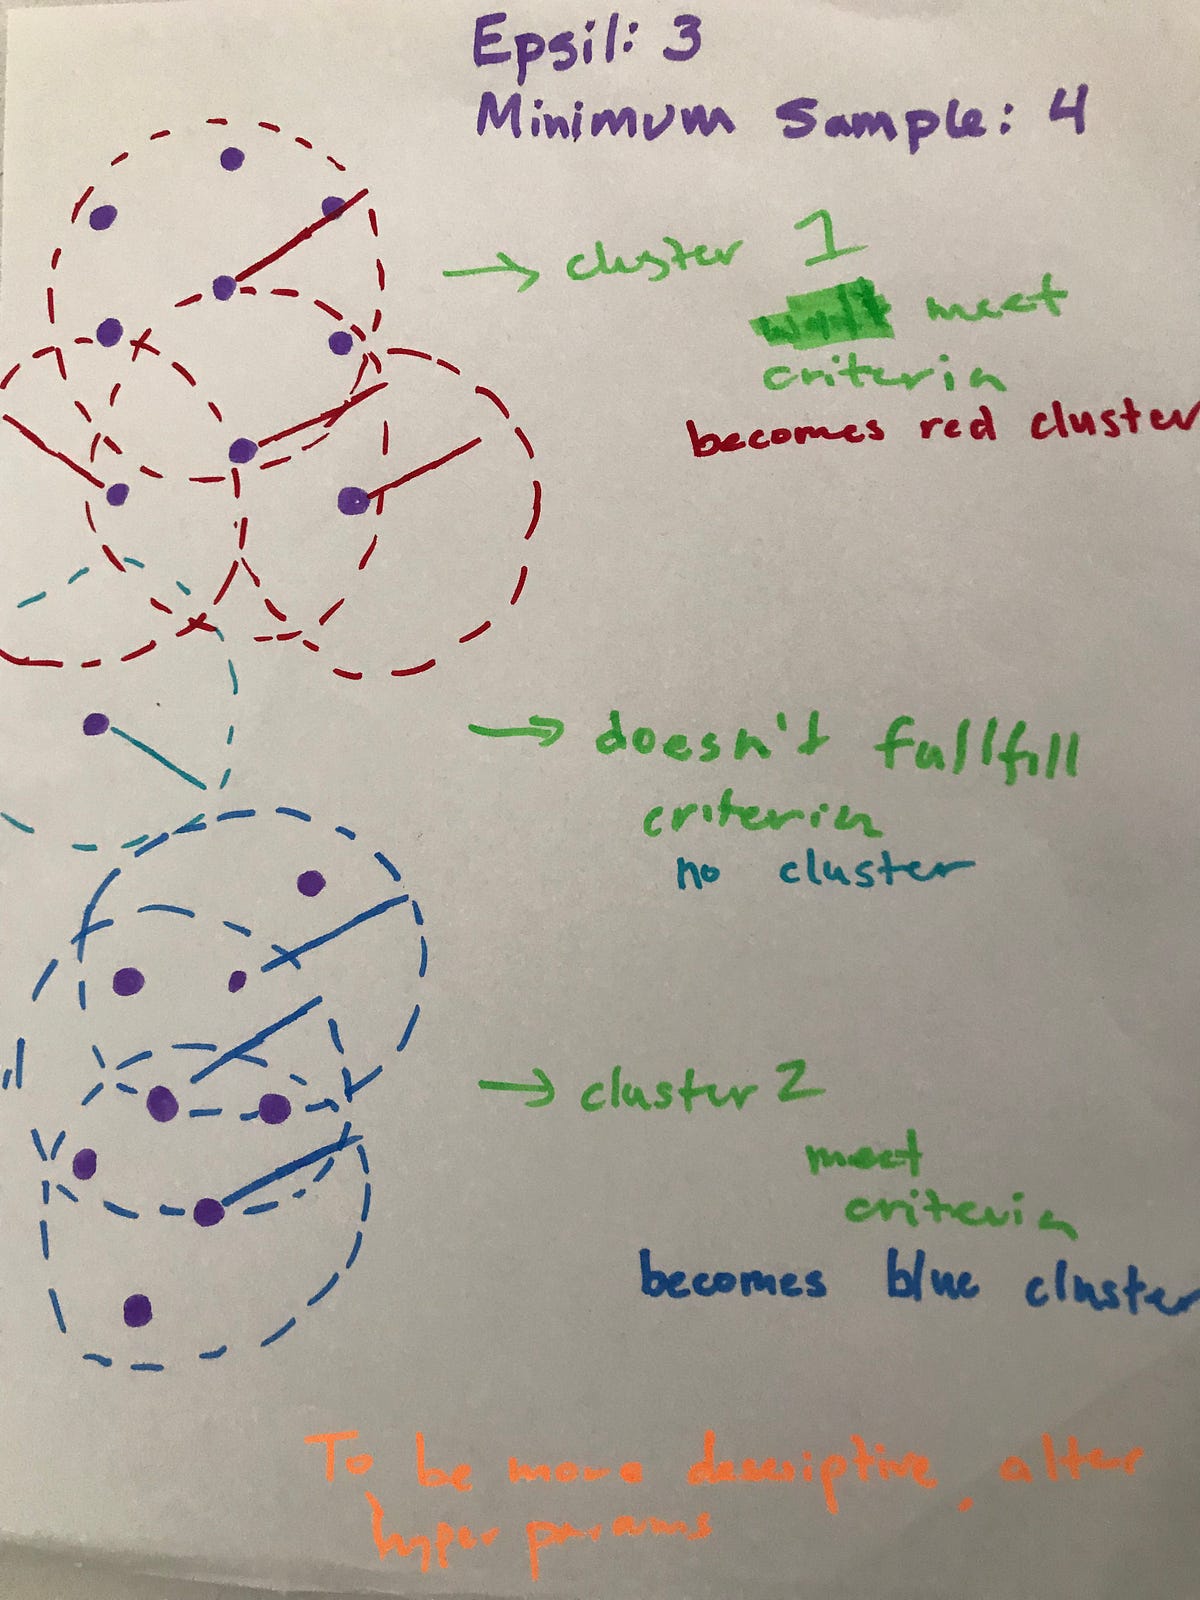 Epsil: 3
Minimum Sample: 4
→ cluster 1
meet
criteria
becomes red cluster
→ doesn't fullfill
criteria
no cluster
→ cluster 2
meet
criteria
becomes blue cluster
To be more descriptive, alter
hyper params